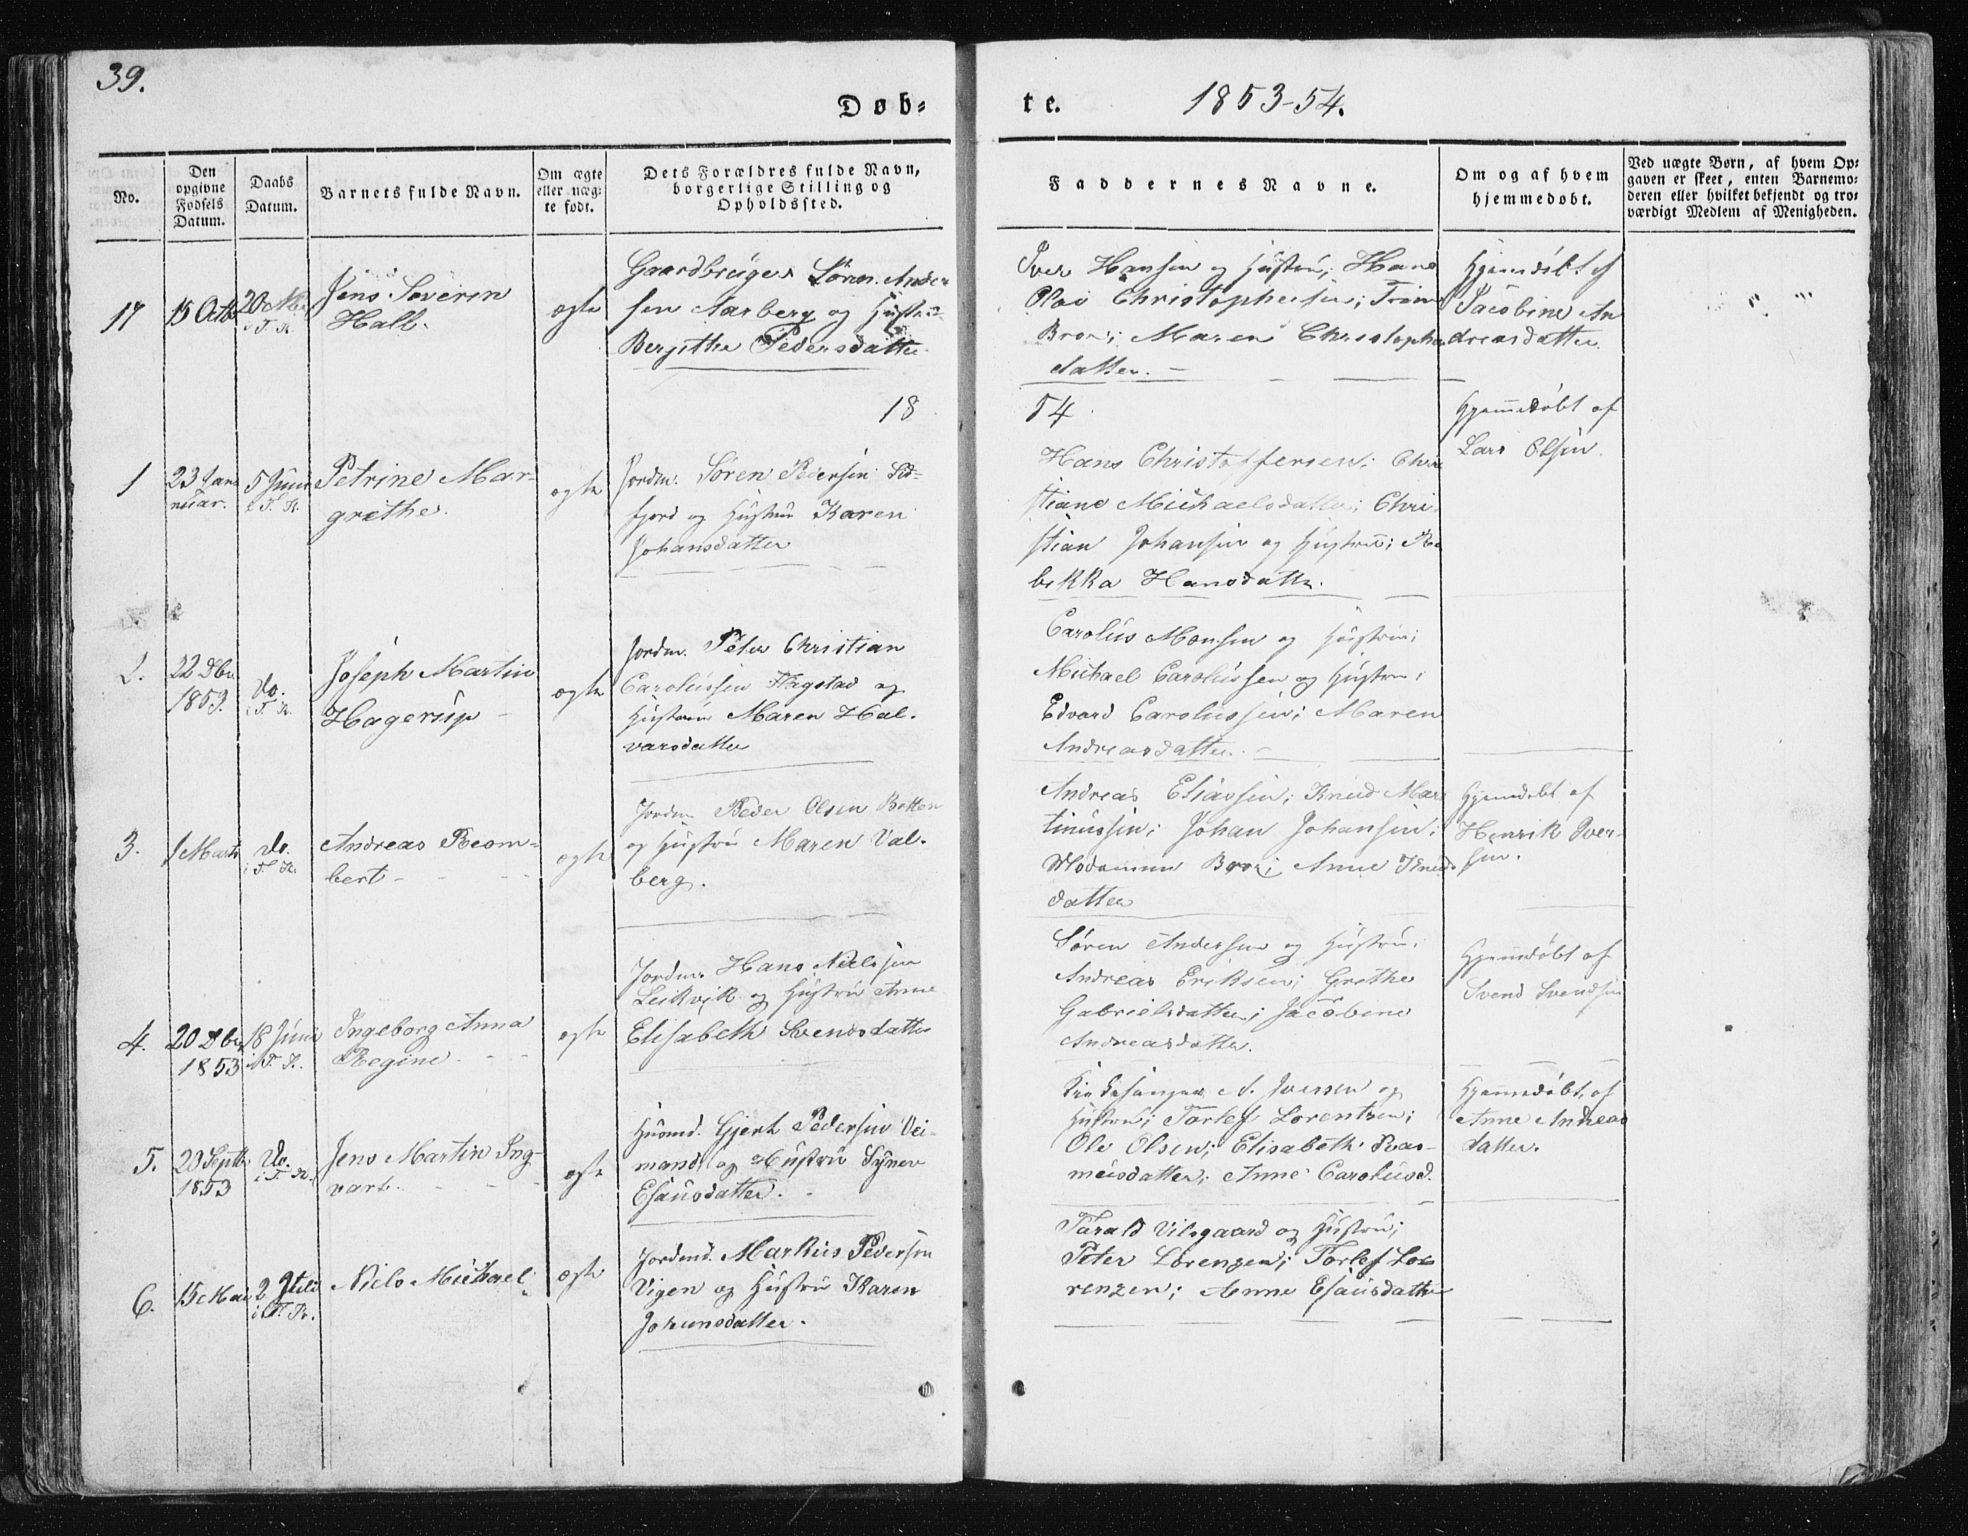 39.
Døb-
te.
1853-54.
No.
Den opgivne Fødsels Datum.
Daabs Datum.
Barnets fulde Navn.
Om ægte eller uæg-te født.
Dets Forældres fulde Navn, borgerlige Stilling og Opholdssted.
Faddernes Navne.
Om og af hvem hjemmedøbt.
Ved uægte Børn, af hvem Op-
gaven er skeet, enten Barnemo-
deren eller hvilket bekjendt og tro-
værdigt Medlem af Menigheden.
17
15 Octb
20
i T. K.
Jens Severin
Hall.
ægte
Gaardbruger Sören Ander
sen Aarberg og Hustru
Bergithe Pedersdatter
Iver Hansen og Hustru; Hans
Olai Christophersen;
Bros; Maren Christopher
datter.
Hjemdöbt af
Jacobine An
dreasdatter.
18
54
1
23 Jan
nuar.
5 Juni
i T. K.
Petrine Mar-
grethe.
ægte
Jordm. Sören Pedersen
fjord og Hustru Karen
Johansdatter
Hans Christoffersen; Chri
stiane Michaelsdatter; Chri
stian Johansen og Hustru; Re
bekka Hansdatter.
Hjemmedöbt af
Lars Olsen.
2.
22 Dbr.
1853.
do.
i T. K.
Joseph Martin
Hagerup
ægte
Jordm. Peter Christian
Carolussen Flagstad og
Hustru Maren Hal-
varsdatter
Carolus Monsen og Hustru;
Michael Carolussen og Hustru;
Edvard Carolussen; Maren
Andreasdatter.
3.
1 Marts
do.
i T. K.
Andreas Rom-
bert
ægte
Jordm Peder Olsen Botten
og Hustru Maren Val-
berg.
Andreas Eliassen; Knud Mar
tinussen; Johan Johansen;
Madamme Bros; Anne Knuds
datter
Hjemdöbt af
Henrik Iver-
sen.
4.
20 Dbr.
1853
18 Juni
i T. K.
Ingeborg Anna
Regine
ægte
Jordm. Hans Nielssen
Leikvik og Hustru Anne
Elisabeth Svendsdatter
Sören Andersen og Hustru;
Andreas Eriksen; Grethe
Gabrielsdatter; Jacobine
Andreasdatter.
Hjemmdöbt af
Svend Svendsen
5.
20 Septbr
1853
do.
i T. K.
Jens Martin Ing-
vart.
ægte
Husmd. Gjert Pedersen Vei-
mand og Hustru Synev
Esausdatter.
Kirkesanger A. Iversen og
Hustru; Torlef Lorentzen;
Ole Olsen; Elisabeth Ras-
musdatter; Anne Carolusd.
Hjemmedöbt af
Anne Andreas
datter.
6.
15 Mai
2 Juli
i T. K.
Niels Michael
ægte
Jordmd. Markus Pedersen
Vigen og Hustru Karen
Johansdatter.
Tarald Vilsgaard og Hustru;
Peter Lorenzen; Torlef Lo-
renzen; Anne Esausdatter